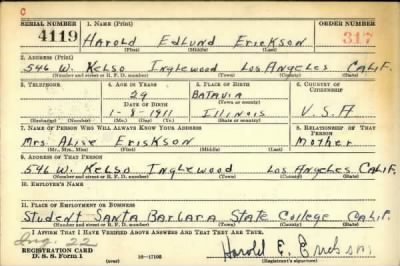 C
SERIAL NUMBER 1. NAME (Print) ORDER NUMBER
4119 HAROLD EDLUND ERICKSON 317
(First) (Middle) (Last)
2. ADDRESS (Print)
546 W. KELSO INGLEWOOD LOS ANGELES CALIF.
(Number and street or R. F. D. number) (Town) (County) (State)
3. TELEPHONE 4. AGE IN YEARS 5. PLACE OF BIRTH 6. COUNTRY OF CITIZENSHIP
29 BATAVIA
DATE OF BIRTH (Town or county)
1-8-1911 ILLINOIS U.S.A
(Exchange) (Number) (Mo.) (Day) (Yr.) (State or country)
7. NAME OF PERSON WHO WILL ALWAYS KNOW YOUR ADDRESS 8. RELATIONSHIP OF THAT PERSON
Mrs. Alise Eriskson Mother
(Mr., Mrs., Miss) (First) (Middle) (Last)
9. ADDRESS OF THAT PERSON
546 W. KELSO INGLEWOOD LOS ANGELES CALIF.
(Number and street or R. F. D. number) (Town) (County) (State)
10. EMPLOYER'S NAME
11. PLACE OF EMPLOYMENT OR BUSINESS
Student Santa Barbara State College Calif.
(Number and street or R. F. D. number) (Town) (County) (State)
I AFFIRM THAT I HAVE VERIFIED ABOVE ANSWERS AND THAT THEY ARE TRUE.
22
REGISTRATION CARD
D. S. S. Form 1 16-17105 Harold E. Erickson
(Registrant's signature)